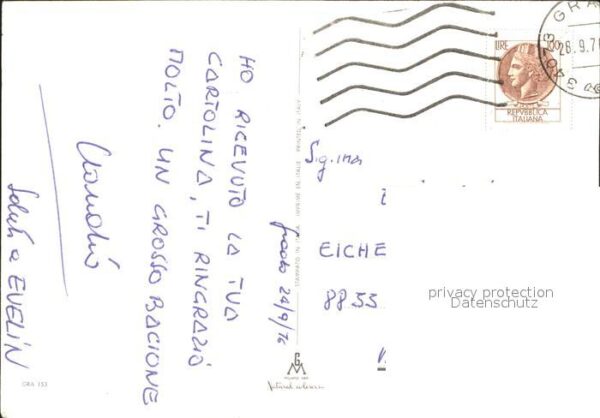 HO RICEVUTO LA TUA
CARTOLINA, TI RINGRAZIO
MOLTO. UN GROSSO BACIONE
Claudio
Saluti a EVELIN
24/9/76
GRA 153
LIRE 100
REPVBBLICA
ITALIANA
GRA
26.9.7
Sig.ina
EICHE
8853
privacy protection
Datenschutz
GM